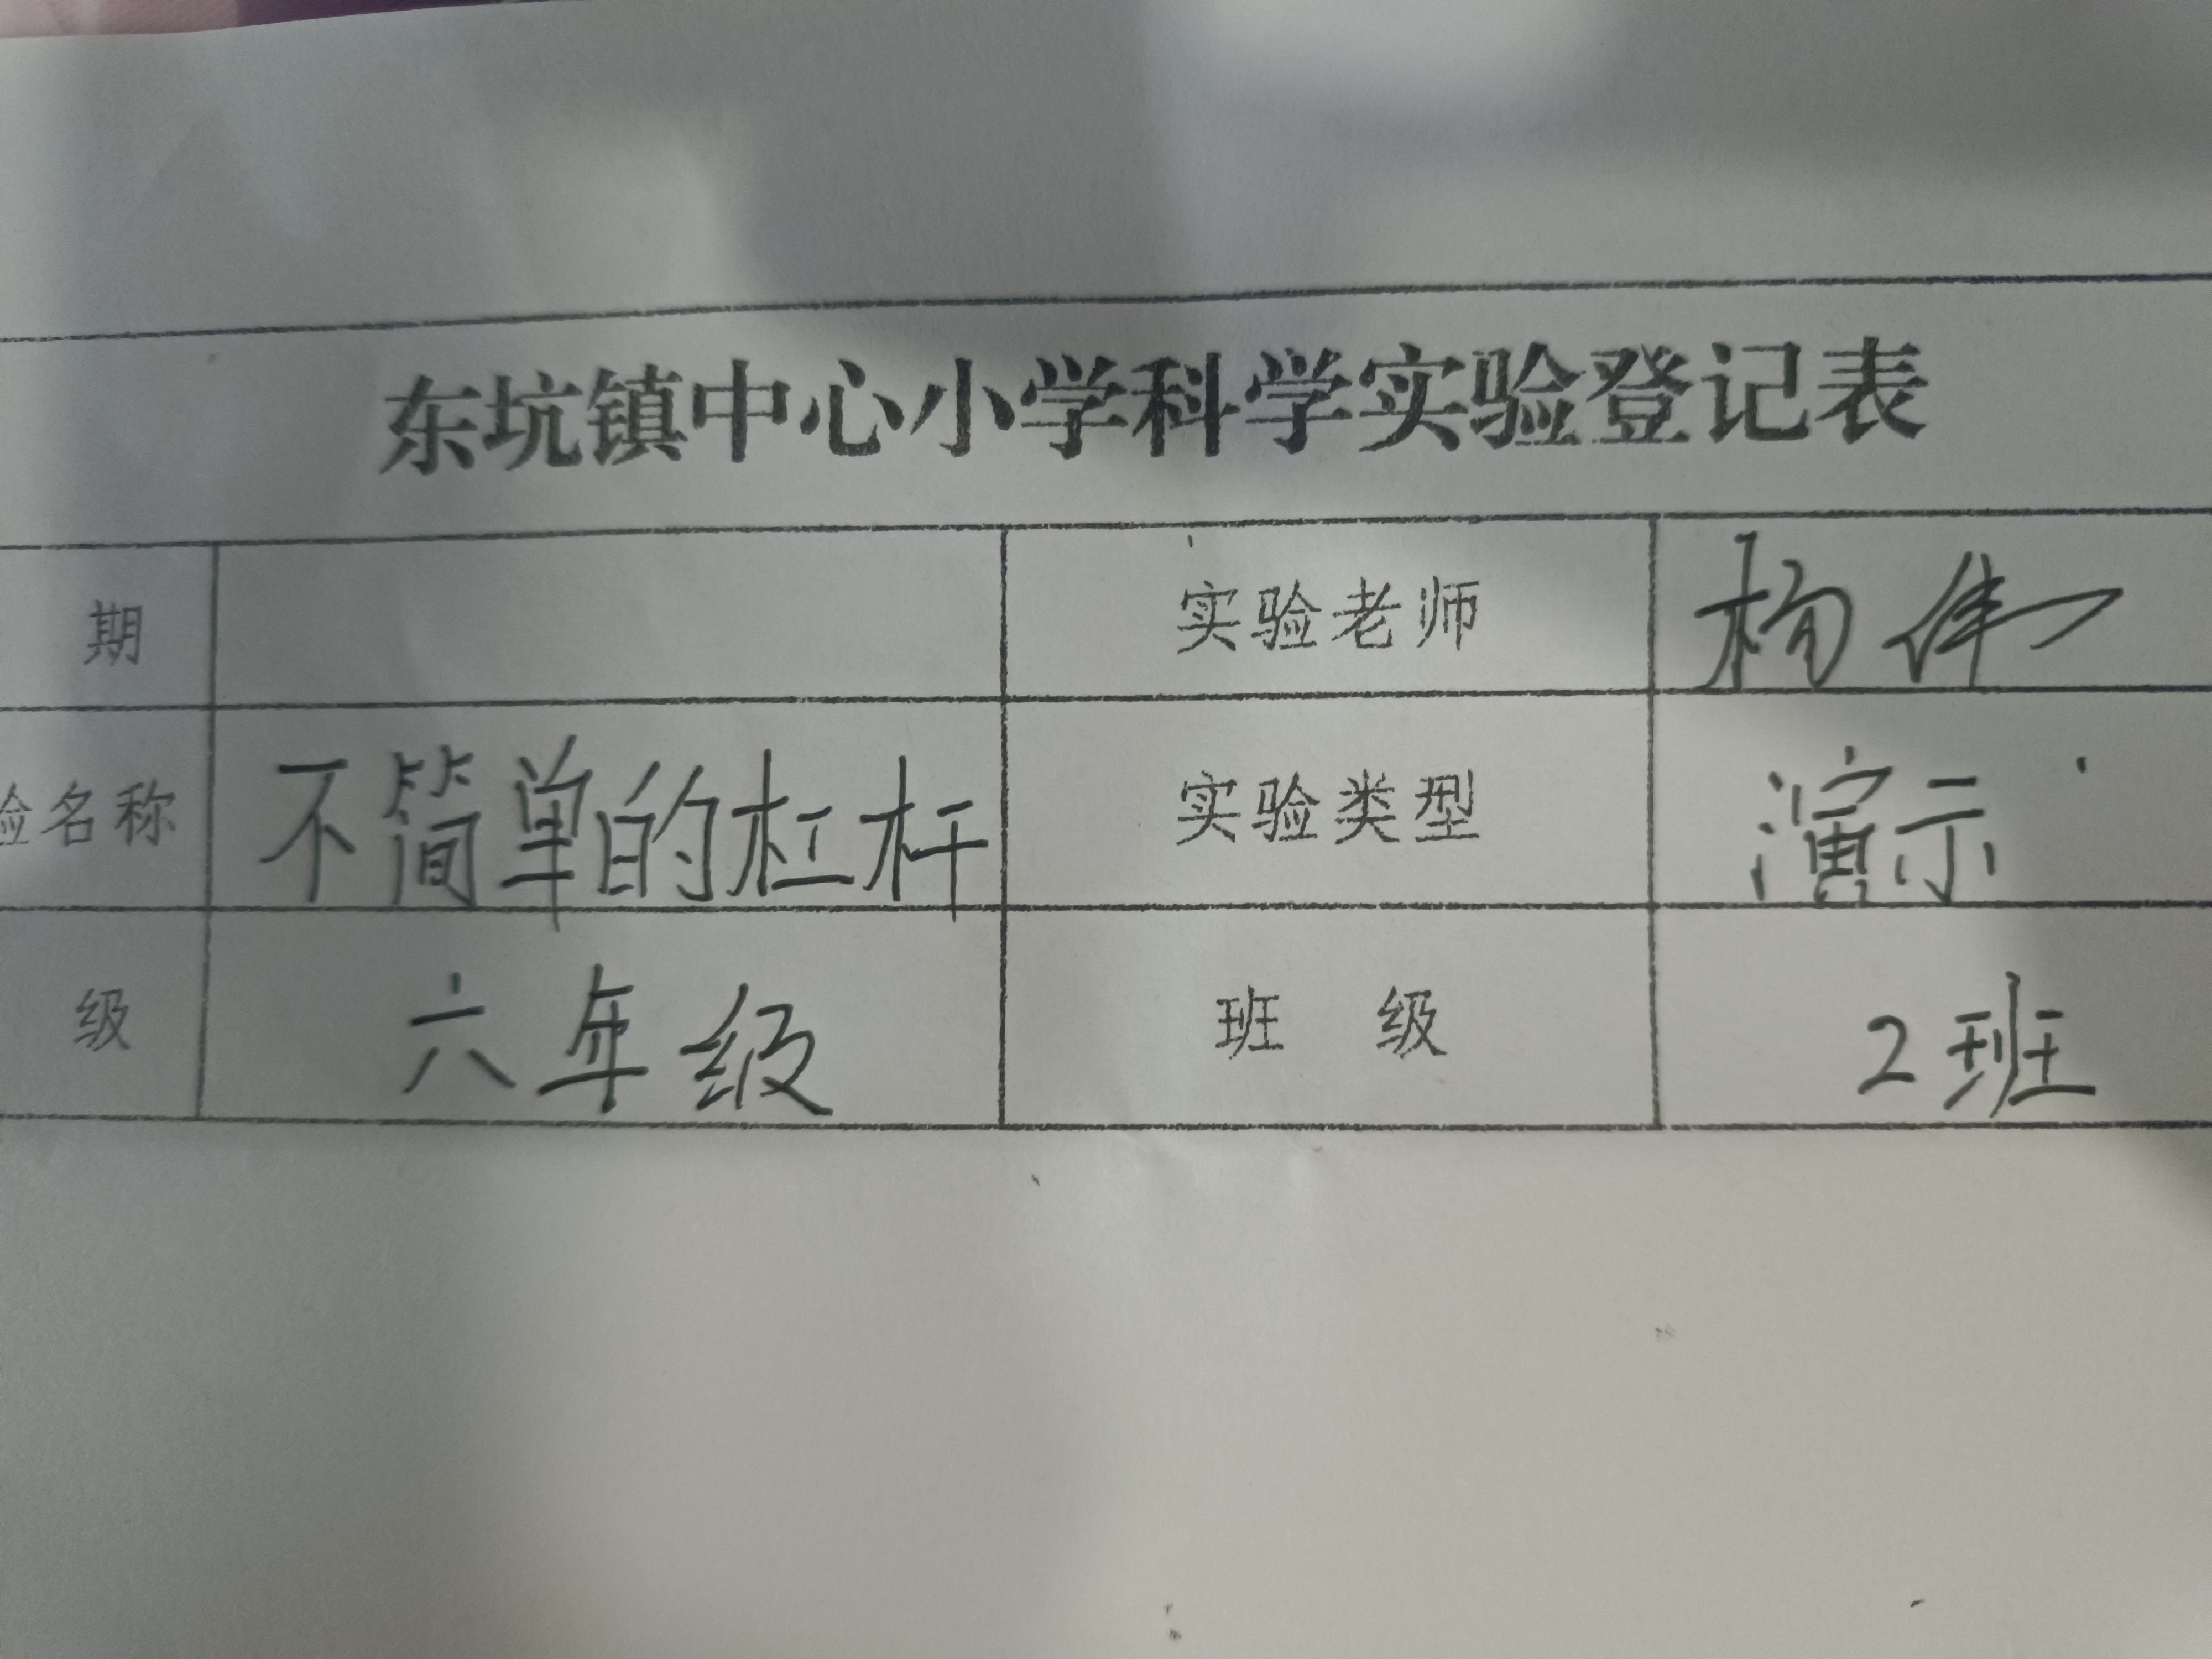 东坑镇中心小学科学实验登记表
期 实验老师 杨伟
验名称 不简单的杠杆 实验类型 演示
级 六年级 班 级 2班